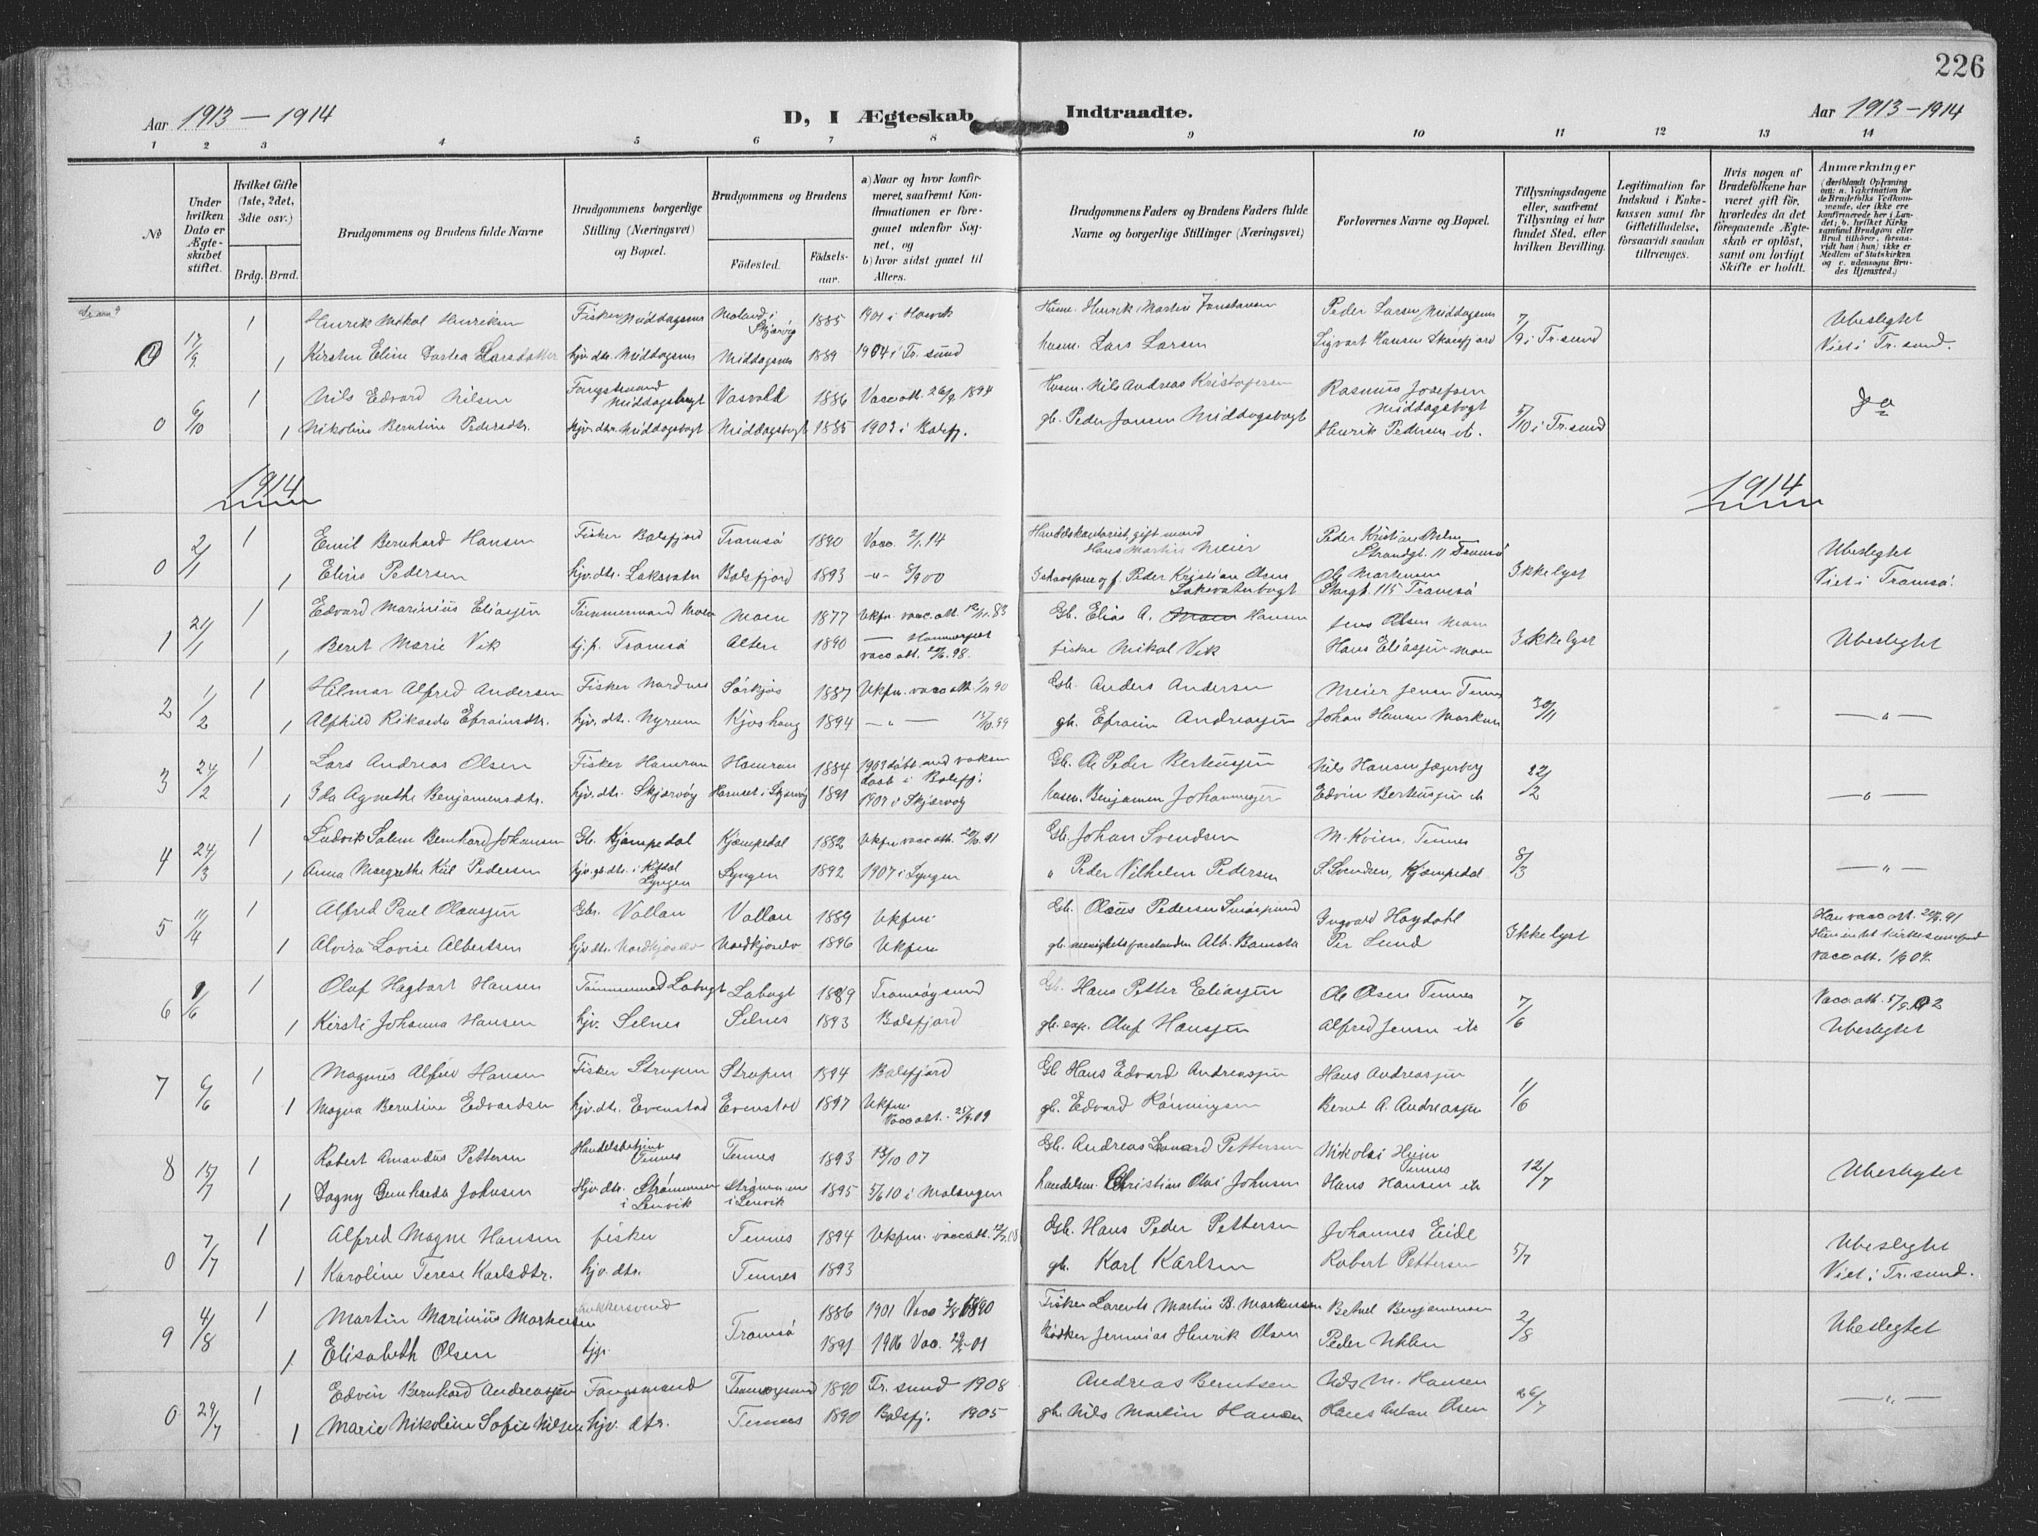 226
Aar 1913 — 1914
D, I Ægteskab Indtraadte.
Aar 1913 - 1914
1 2 3 4 5 6 7 8 9 10 11 12 13 14
No
Under hvilken Dato er Ægteskabet stiftet.
Hvilket Gifte (1ste, 2det, 3die osv.)
Brdg. Brud.
Brudgommens og Brudens fulde Navne
Brudgommens borgerlige Stilling (Næringsvei) og Bopæl.
Brudgommens og Brudens
Fødested. Fødselsaar.
a) Naar og hvor konfirmeret, saafremt Konfirmationen er foregaaet udenfor Sognet, og
b) hvor sidst gaaet til Alters.
Brudgommens Faders og Brudens Faders fulde Navne og borgerlige Stillinger (Næringsvei)
Forlovernes Navne og Bopæl.
Tillysningsdagene eller, saafremt Tillysning ei har fundet Sted, efter hvilken Bevilling.
Legitimation for Indskud i Enkekassen samt for Giftetilladelse, forsaavidt saadan tiltrænges.
Hvis nogen af Brudefolkene har været gift før, hvorledes da det foregaaende Ægteskab er opløst, samt om lovligt Skifte er holdt.
Anmærkninger
(deriblandt Oplysning om: a. Vakcination for de Brudefolks Vedkommende, der ikke ere konfirmerede her i Landet; b. hvilket Kirkesamfund Brudgom eller Brud tilhører, forsaavidt han (hun) ikke er Medlem af Statskirken og c. udensogns Brudes Hjemsted.)
17/9 1 Henrik Mikal Henriksen Fisker Middagsnes Meiland i Skjærvøy 1885 1901 i Hasvik Husm. Henrik Martin Peder Larsen Middagsnes 7/9 i Tr.sund Ubeslegtet
1 Kirstin Eline Dortea Larsdatter hjv. dtr. Middagsnes Middagsnes 1889 1904 i Tr.sund husm. Lars Larsen Sigvart Hansen Viet i Tr.sund.
0 6/10 1 Nils Edvard Nilsen Fangstmand Middagsbugt Vasvold 1886 Vacc att. 26/9 1894 Husm. Nils Andreas Kristofersen Rasmus Josefsen Middagsbugt 5/10 i Tr.sund do
1 Nikoline Berntine Pedersdtr. hjv. dtr. Middagsbugt Middagsbugt 1885 1903 i Balsfj. gb. Peder Jonsen Middagsbugt Henrik Pedersen ib.
1914 1914
0 2/1 1 Emil Bernhard Hansen Fisker Balsfjord Tromsø 1890 Vacc. 2/1.14 gift mand Hans Martin Meier Peder Kristian Strandgt. 11 Tromsø Ikke lyst Ubeslegtet
1 Eline Pedersen hjv. dtr. Laksvatn Balsfjord 1893 -"- 5/9 00 Peder Kristian Olsen Laksvatnbugt Ole Martensen Storgt. 115 Tromsø Viet i Tromsø.
1 24/1 1 Edvard Marinius Eliassen Tømmermand Moen Moen 1877 Ukfm. vacc att. 12/1. 83 Gb. Elias A. Moen Hansen Jens Olsen Moen Ikke lyst Ubeslegtet
1 Beret Marie Vik tj. p. Tromsø Alten 1890 — Hammerfest vacc att. 98. fisker Mikal Vik Hans Eliassen Moen
2 1/2 1 Hilmar Alfred Andersen Fisker Nordnes Sørkjos 1887 Ukfm. vacc att. 90 Gb. Anders Andersen Meier Jensen Tennes 30/11 — " —
1 Alfhild Rikarda Efraimsdtr. hjv. dtr. Nyrum Kjoshaug 1894 — " — 99 gb. Efraim Andreassen Johan Hansen Markenes
3 24/2 1 Lars Andreas Olsen Fisker Hamran Hamran 1884 1903 døbt med voksen daab i Balsfj. Gb. Ole Peder Berteussen Nils Hansen Jægerberg 22/2 — " —
1 Ida Agnethe Benjaminsdtr. hjv. dtr. Skjærvøy Havnnes i Skjærvøy 1891 1907 i Skjærvøy husm. Benjamin Johannessen Edvin Berteussen ib
4 24/3 1 Ludvik Salem Bernhard Johansen Gb. Kjempedal Kjempedal 1882 Ukfm vacc att. 91 Gb. Johan Svendsen M. Kvien, Tennes 8/3 — " —
1 Anna Margrethe Kiil Pedersen hjv. gb. dtr. i Lyngen Lyngen 1892 1907 i Lyngen " Peder Vilhelm Pedersen S. Svendsen, Kjæmpedal
5 11/4 1 Alfred Paul Olaussen Gbr. Vollan Vollan 1889 Ukfm. Gb. Olaus Pedersen Ingvald Høydahl Ikke lyst Han vacc att. 91
1 Alvira Lovise Albertsen hjv. dtr. Nordkjoselv Nordkjoselv 1896 Ukfm gb. menighetsforstander Alb. Per Lund Hun int kirkesamfund vacc att. 1/9 07.
6 1/6 1 Olaf Hagbart Hansen Tømmermand Løbugt Løbugt 1889 Tromsøysund Gb. Hans Petter Eliassen Ole Olsen Tennes 7/6 Vacc. att.
1 Kirsti Johanna Hansen hjv. Selnes Selnes 1893 Balsfjord gb. exp. Oluf Hanssen Alfred Jensen ib Ubeslegtet
7 6/6 1 Magnus Alfred Hansen Fisker Strupen Strupen 1894 Balsfjord Gb Hans Edvard Andreassen Hans Andreassen 1/6
1 Magna Berntine Edvardsen hjv. dtr. Evenstad Evenstad 1897 Ukfm. Vacc att. 09 gb. Edvard Rønningsen Bernt A. Andreassen
8 15/7 1 Robert Amandus Pettersen Handelsbetjent Tennes Tennes 1893 13/10 07 Gb. Andreas Leonard Pettersen Nikolai Heim Tennes 12/7 Ubeslegtet
1 Dagny Gunharda Johnsen Hjv. dtr. Strømmen i Lenvik Strømmen i Lenvik 1895 5/6 10 i Malangen handelsm. Christian Olai Johnsen Hans Hansen ib
0 7/7 1 Alfred Magne Hansen fisker Tennes 1894 Ukfm. vacc att. Gb. Hans Peder Pettersen Johannes Eide 5/7 Ubeslegtet
1 Karoline Terese Karlsdtr. hjv. dtr. Tennes 1893 gb. Karl Karlsen Robert Pettersen Viet i Tr.sund.
9 4/8 1 Martin Marinius Markussen Tromsø 1886 1901 Vacc 1890 Fisker Lorents Martin B. Markussen Betuel Benjaminsen 2/8 Ubeslegtet
1 Elisabeth Olsen tjp. 1891 1906 Vac. 01 Bødker Jermias Henrik Olsen Peder
0 29/7 1 Edvin Bernhard Andreassen Fangsmand Tromsøysund 1890 Tr.sund 1908 Andreas Berntsen Nils M. Hansen 26/7 — " —
1 Marie Nikoline Sofie Nilsen hjv. dtr. Tennes 1890 Balsfj. 1905 gb. Nils Martin Hansen Hans Anton Olsen